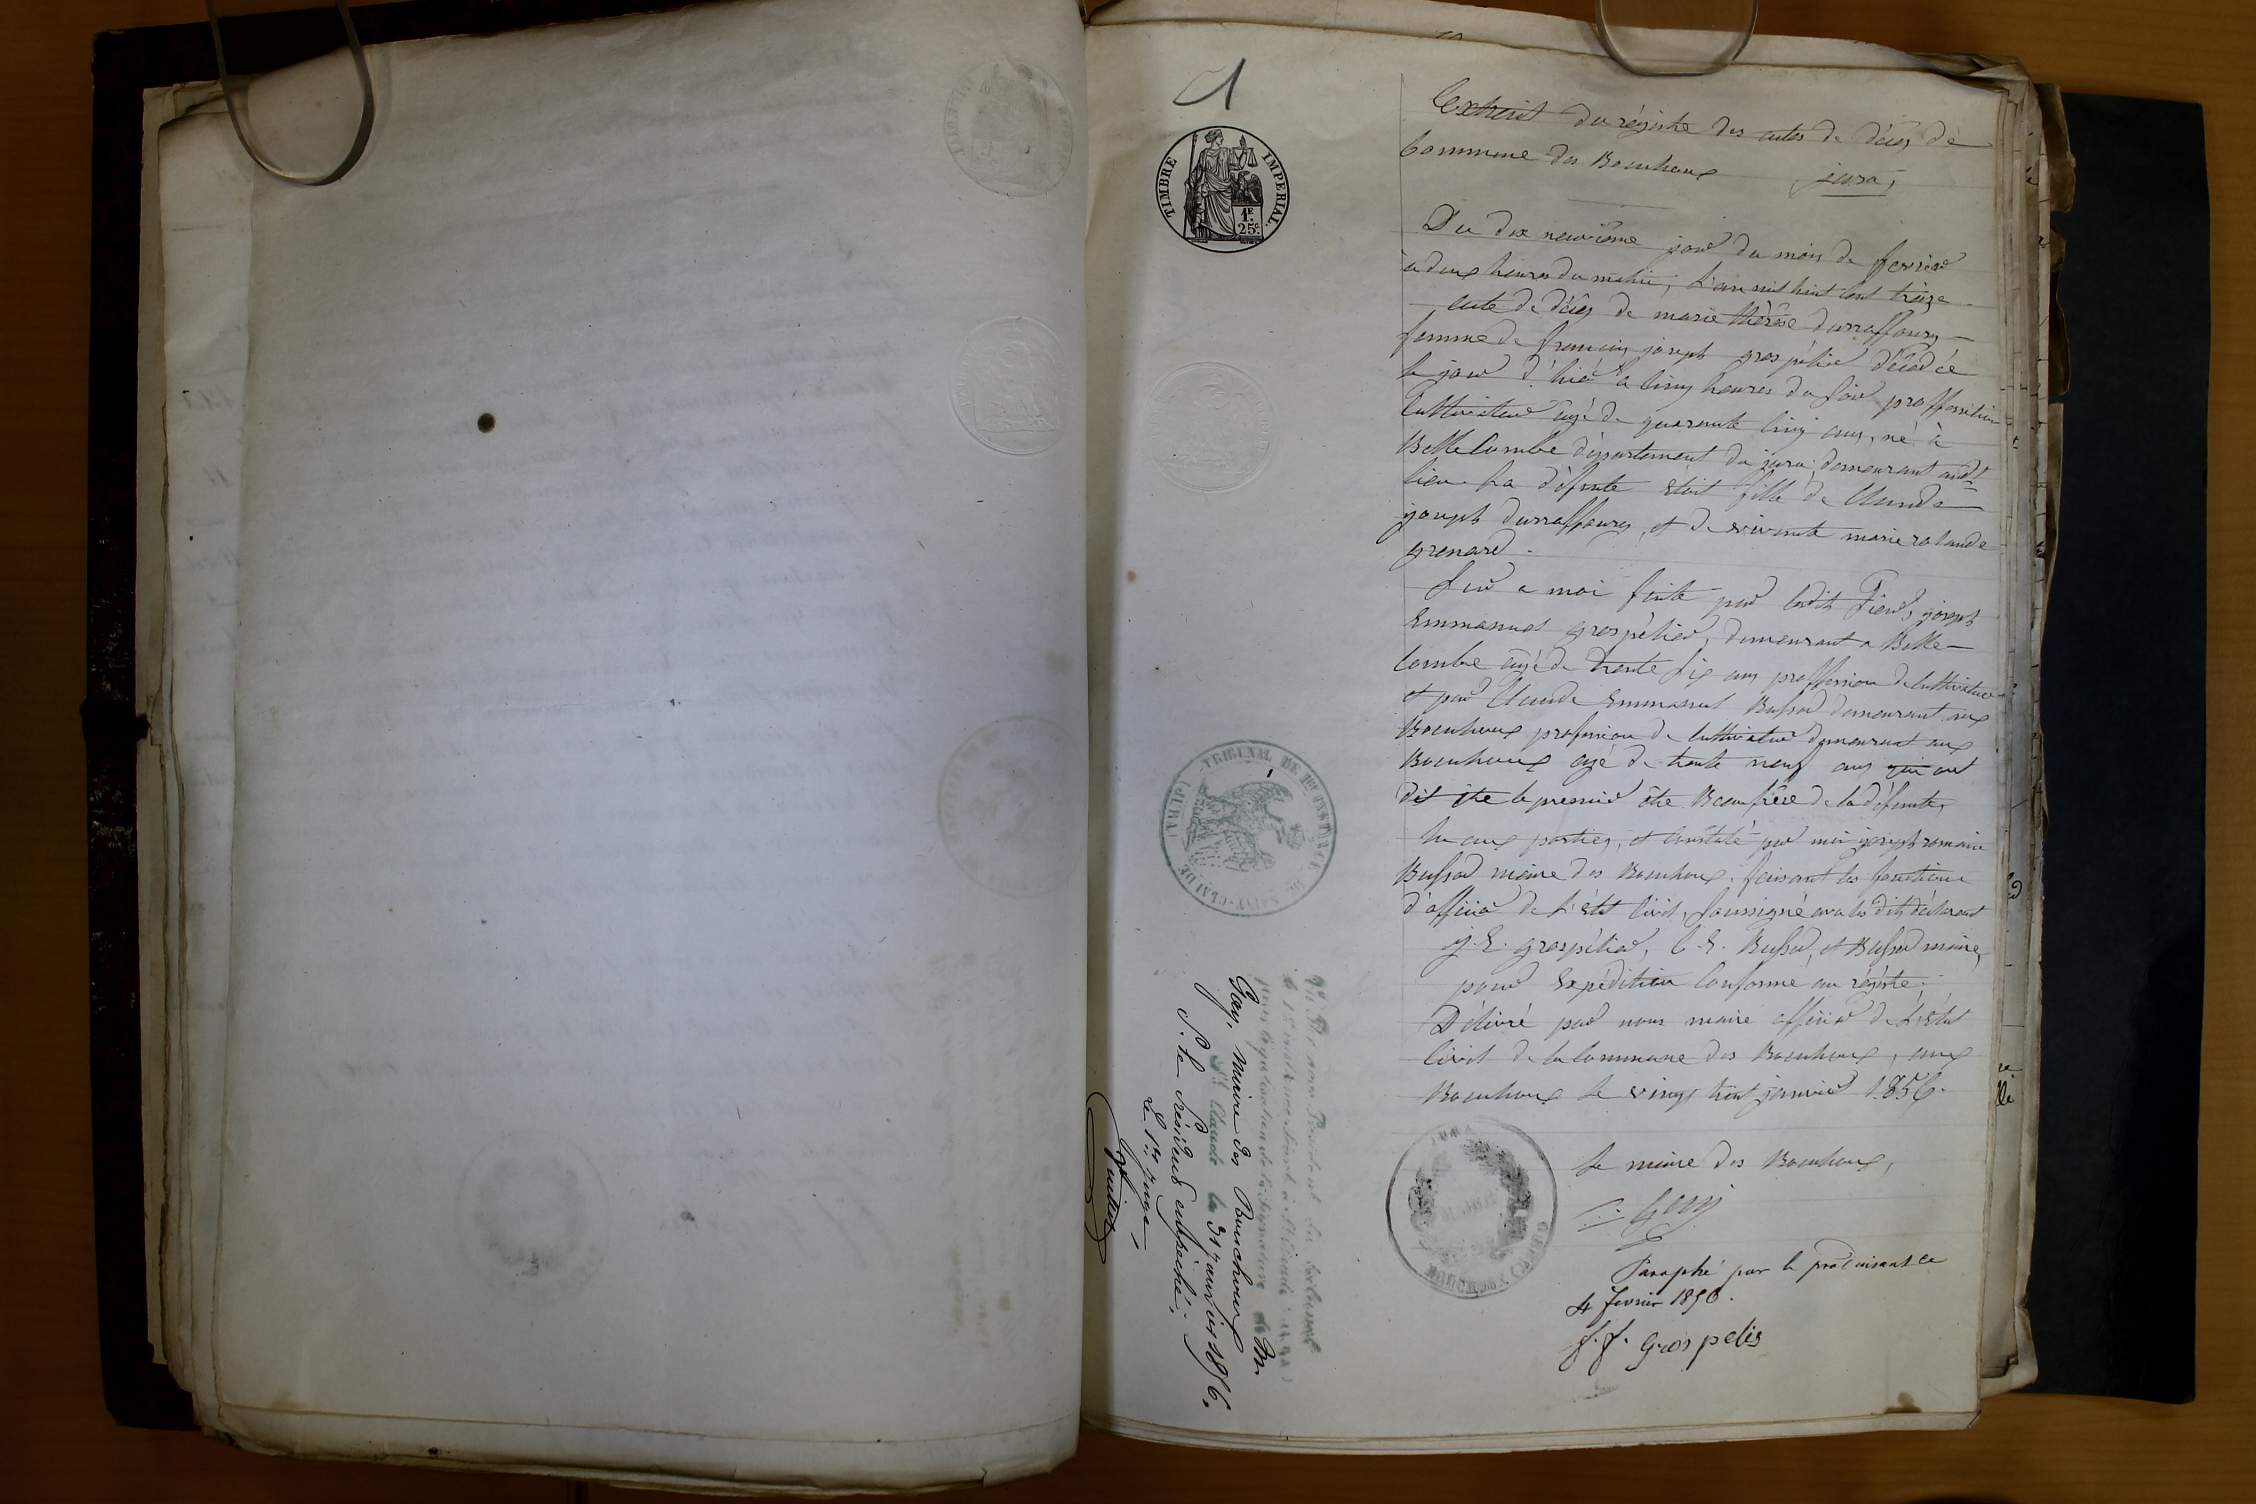 1
TIMBRE IMPERIAL
1F. 25c.
Extrait du régistre des actes de décès de
Commune des Bouchoux jura,
Du dix neuvième jour du mois de fevrier
a deux heures du matin, L'an mil huit cent treize
acte de décès de marie thérèse durraffourg
femme de francois joseph grospélier décédée
le jour d'hier a cinq heures du soir proffession
Cultivateur agé de quarante cinq ans, né à
Belle Combe département du jura, demeurant audt
lieu. La défunte étoit fille de Claude
joseph durraffourg, et de vivente marie
grenard.
sur a moi faite par Joseph
Emmanuel grospélier, demeurant a Belle
Combe agé de trente six ans proffession de Cultivateur
et par Claude Emmanuel Bussod demeurant aux
Bouchoux profession de Cultivateur demeurant aux
Bouchoux agé de trente neuf ans qui ont
dit être le premier être Beaufrère de la défunte,
lu aux parties, et Constaté par moi joseph romain
Bussod maire des Bouchoux faisant les fonctions
d'officier de L'état Civil, soussigné avec les dits déclarant
j. E. grospélier, C. E. Bussod, et Bussod maire,
pour Expédition Conforme au régistre.
Délivré par nous maire officier de L'état
Civil de la Commune des Bouchoux, aux
Bouchoux le vingt huit janvier 1856.
le maire des Bouchoux,
Gay
Paraphé par le produisant ce
4 fevrier 1856.
f. f. Grospelié
TRIBUNAL DE 1ERE INSTANCE DE SAINT-CLAUDE (JURA)
MAIRIE
BOUCHOUX
JURA
Vu par nous Président du tribunal
de 1ère instance séant à St Claude
pour légalisation de la signature de Mr
Gay, maire des Bouchoux
St Claude le 31 janvier 1856.
P. le Président empêché,
Le 1er juge